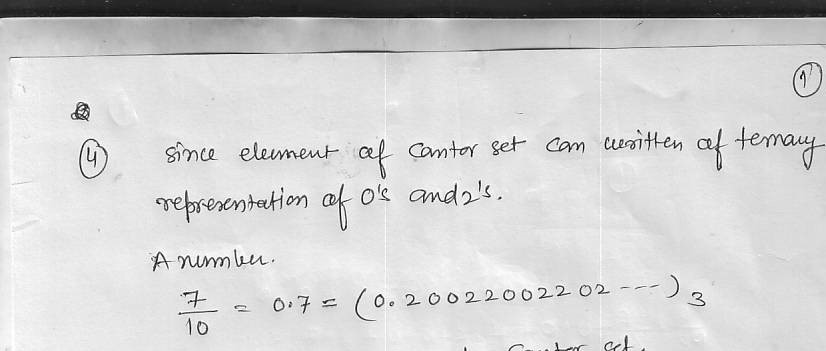 1
(4) since element of Cantor set can written of ternary
representation of 0's and 2's.
A number.
7/10 = 0.7 = (0.20022002202 ---)₃
Cantor set.